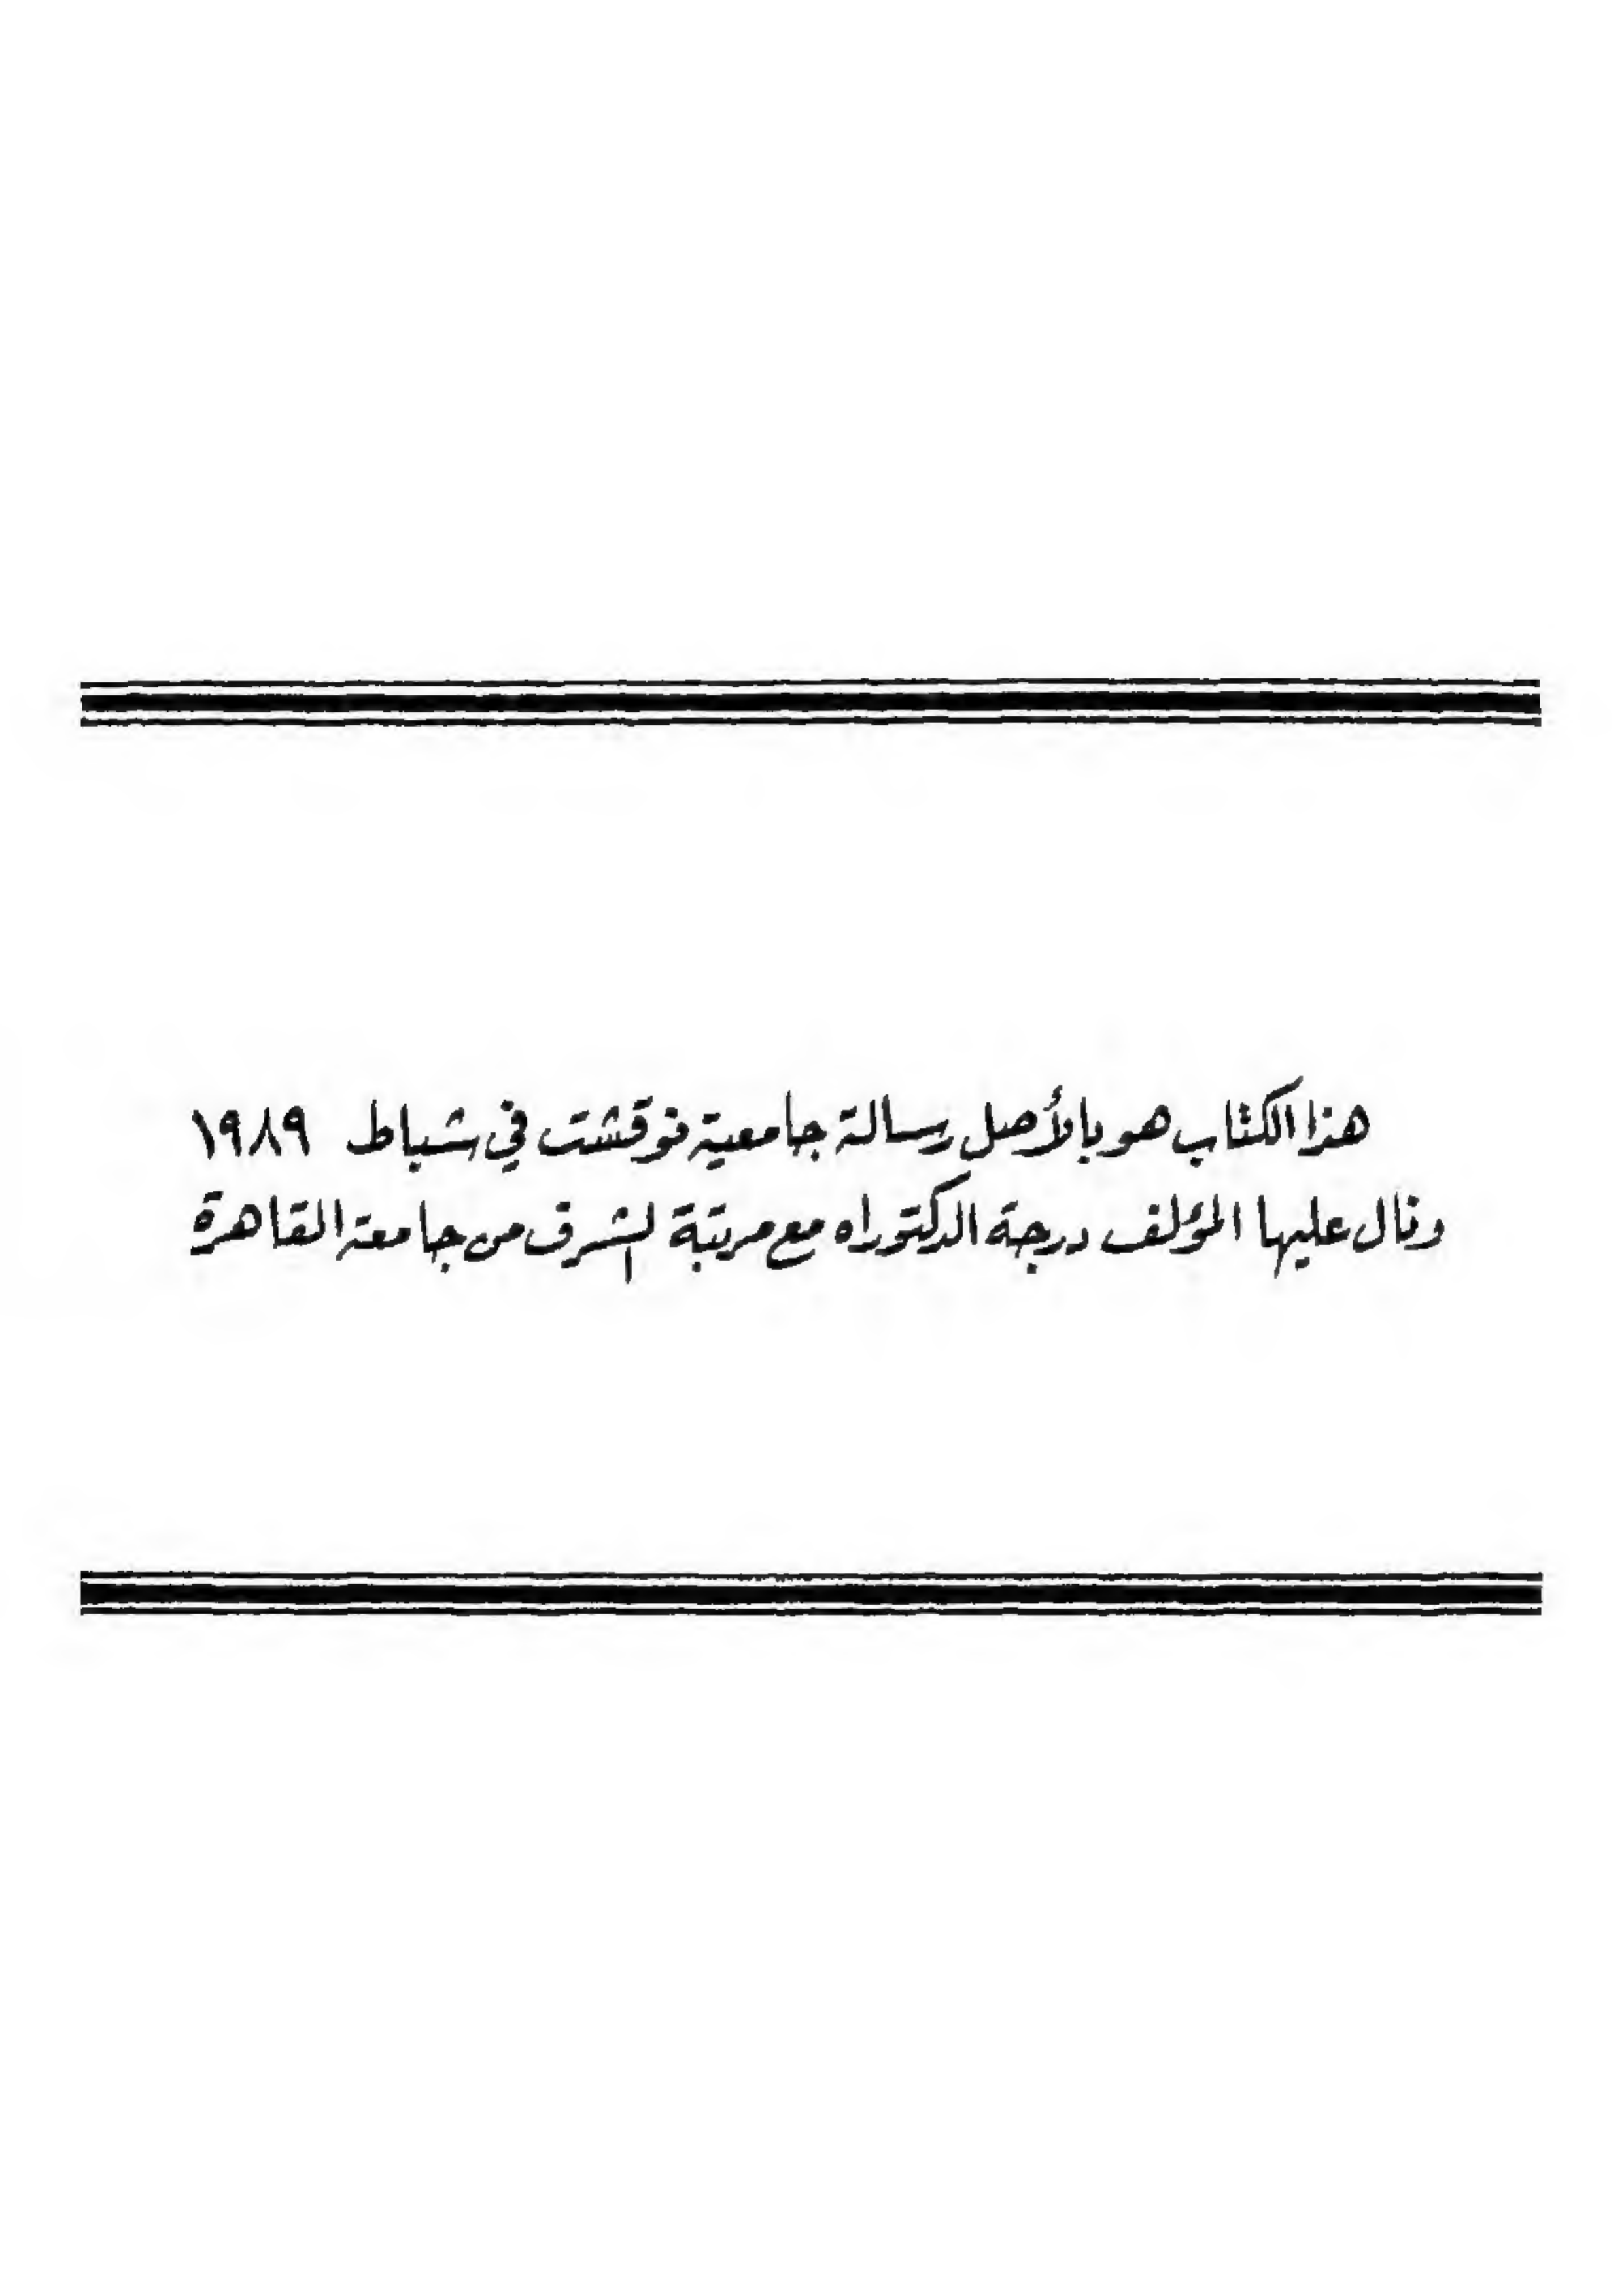 هذا الكتاب هو بالأصل رسالة جامعية نوقشت في شباط ١٩٨٩
ونال عليها المؤلف درجة الدكتوراه مع مرتبة الشرف من جامعة القاهرة